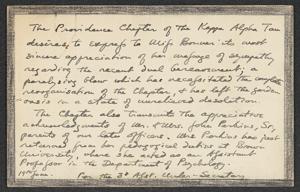 The Providence Chapter of the Kappa Alpha Tau
desires to express to Miss Bonner its most
sincere appreciation of her message of sympathy
regarding the recent dual bereavement: a
paralysing blow which has necessitated the complete
reorganisation of the Chapter, & has left the garden
oasis in a state of unrelieved desolation.
The Chapter also transmits the appreciative
acknowledgments of Mr. & Mrs. John Perkins, Sr.,
parents of our late officer. Mrs. Perkins has just
returned from her pedagogical duties at Brown
University, where she acted as an Assistant
Professor in the Department of Psychology.
For the 3d Asst. Under-Secretary